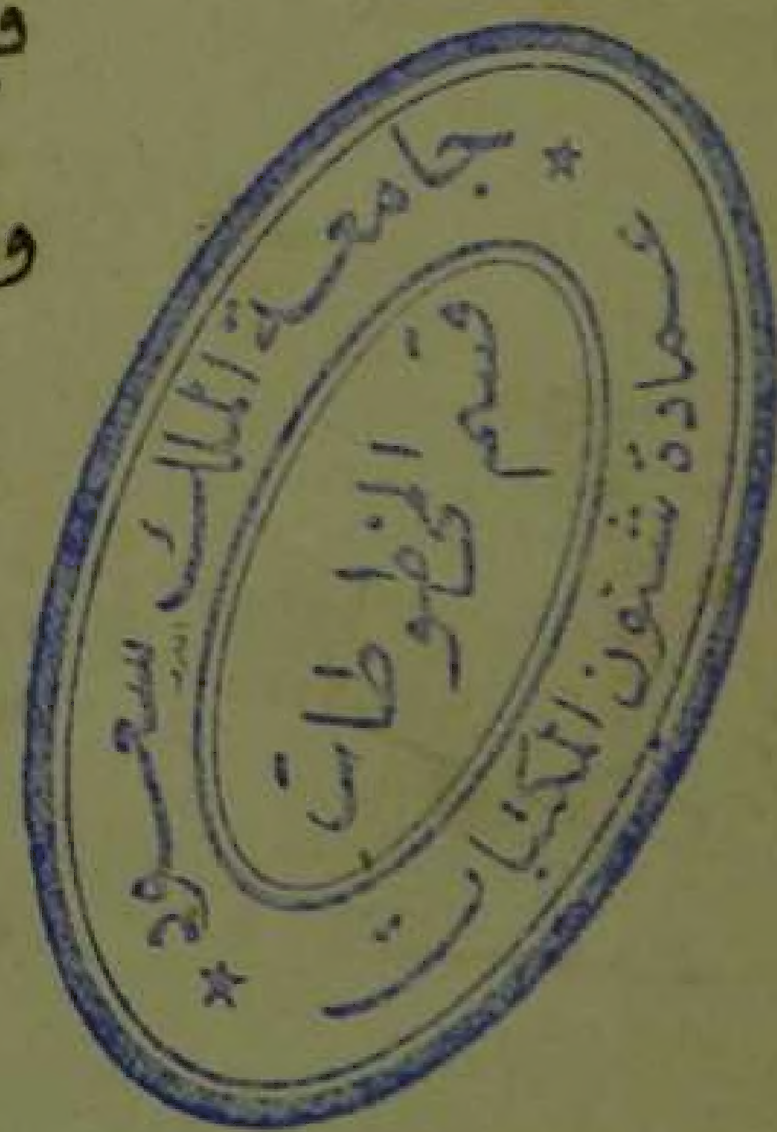 جامعة الملك سعود
قسم
المخطوطات
عمادة شئون المكتبات
و